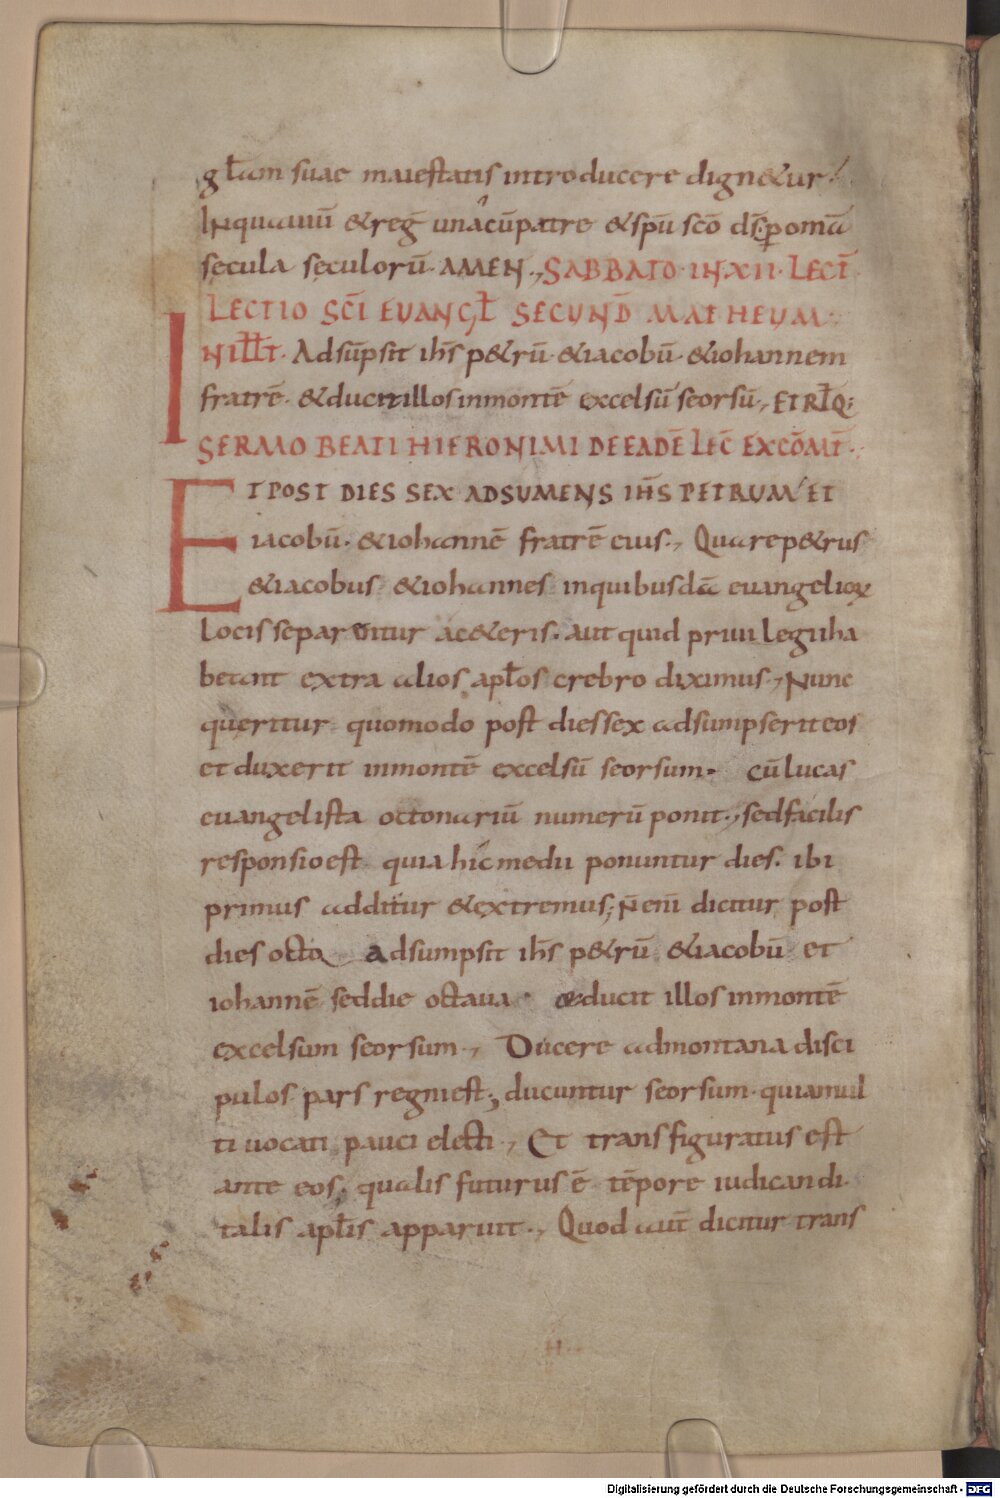 głam suae maiestatis introducere dign&ur.
In qua uiuit̄ & reg̅ una cū patre & sp̄u sc̄o ds̄. p̱ om̄a
secula seculorū. AMEN., SABBATO IN XII. LECT̄
LECTIO SC̄I EVANGŁ SECUND̄ MATHEUM.
IN ILŁT. Adsūpsit ih̄s p&rū. & iacobū. & iohannem
fratrē. & ducit illos in montē excelsū seorsū., ET RŁQ;
SERMO BEATI HIERONIMI DE EADĒ LEC̄ EXCŌMT̄.
ET POST DIES SEX ADSUMENS IH̄S PETRUM ET
iacobū. & iohannē fratrē eius., Quare p&rus
& iacobus & iohannes in quibusdā euangelioꝝ
locis separantur a c&eris. aut quid priuilegii ha
beant extra alios apłos crebro diximus., Nunc
queritur quomodo post dies sex adsumpserit eos
et duxerit in montē excelsū seorsum. cū lucas
euangelista octonariū numerū ponit., sed facilis
responsio est quia hic medii ponuntur dies. ibi
primus additur & extremus; N̄ eni̅ dicitur post
dies octo Adsumpsit ih̄s p&rū & iacobū et
iohannē sed die octaua & ducit illos in montē
excelsum seorsum., Ducere ad montana disci
pulos pars regni est; ducuntur seorsum. quia mul
ti uocati pauci electi., Et transfiguratus est
ante eos; qualis futurus ē tēpore iudicandi.
talis apłis apparuit., Quod aut̄ dicitur trans
Digitalisierung gefördert durch die Deutsche Forschungsgemeinschaft - DFG